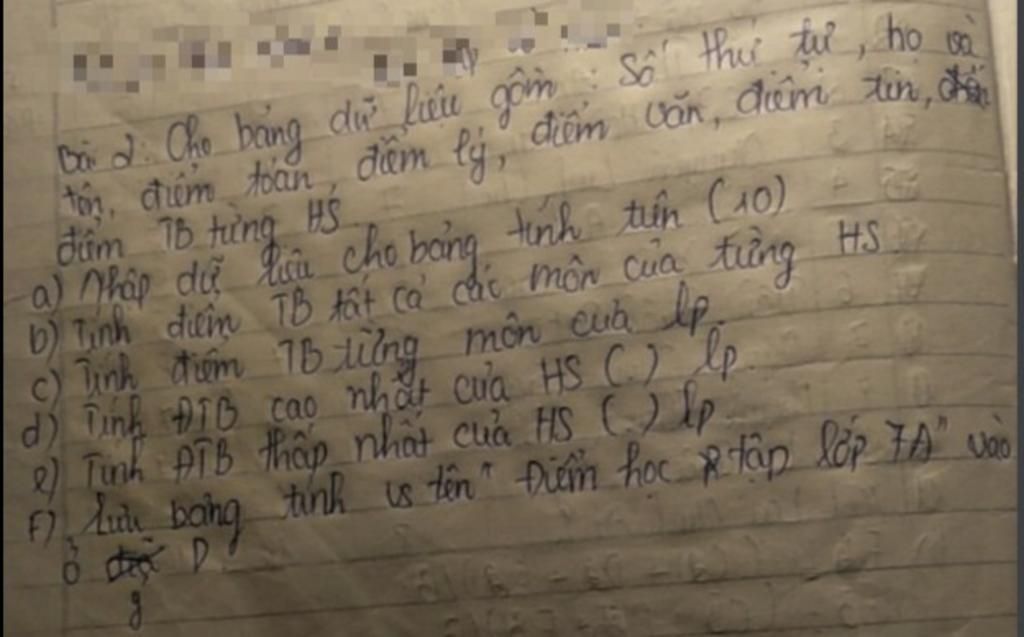 Bài 2. Cho bảng dữ liệu gồm: Số thứ tự, họ và
tên, điểm toán, điểm lý, điểm văn, điểm tin,
điểm TB từng HS
a) Nhập dữ liệu cho bảng tính trên (10)
b) Tính điểm TB tất cả các môn của từng HS
c) Tính điểm TB từng môn của lp.
d) Tính ĐTB cao nhất của HS (.) lp.
e) Tính ĐTB thấp nhất của HS ( ) lp.
F) Lưu bảng tính vs tên " Điểm học tập lớp 7A" vào
ổ D
g